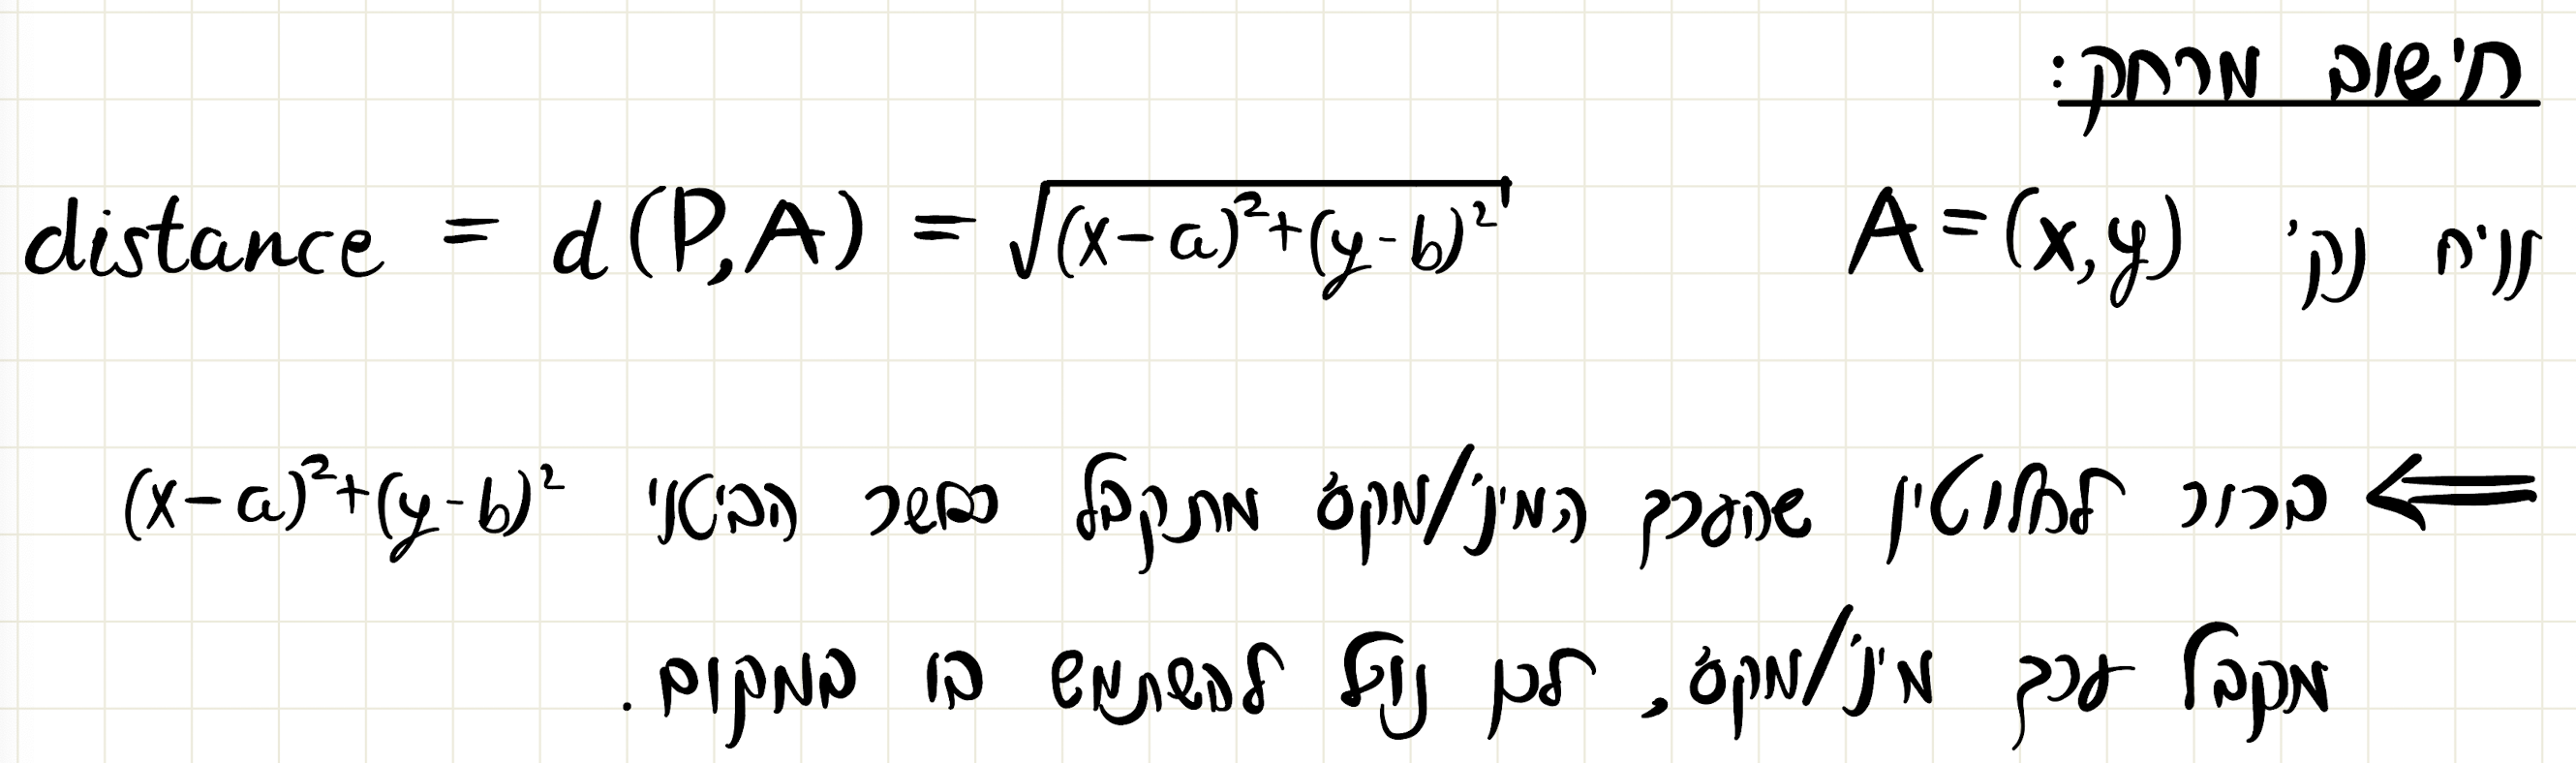 חישוב מרחק:
נניח נק' A=(x,y) distance = d(P,A) = √((x-a)²+(y-b)²)
⇐ ברור לחלוטין שהערך המינ'/מקס' מתקבל כאשר הביטוי (x-a)²+(y-b)²
מקבל ערך מינ'/מקס', לכן נוכל להשתמש בו במקום.